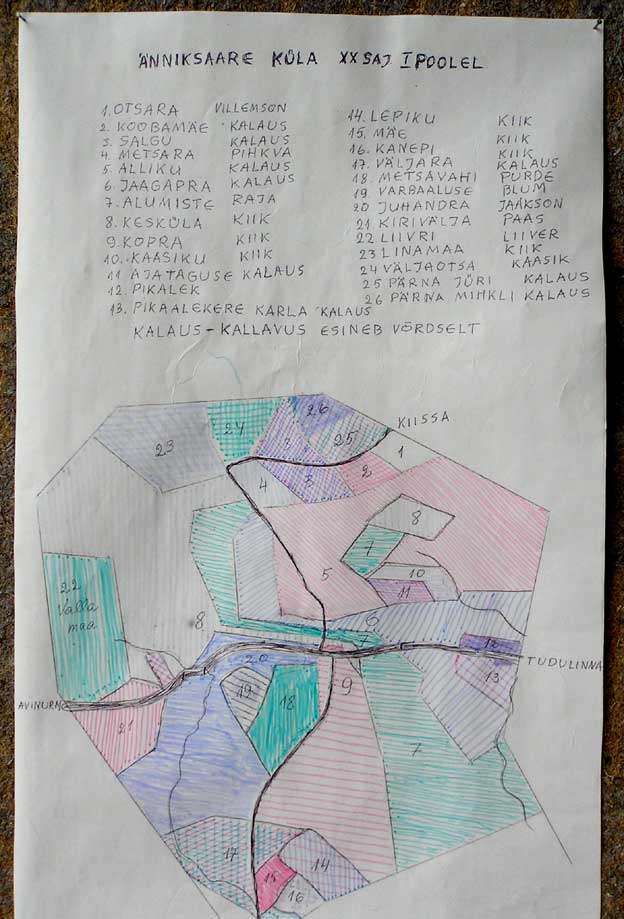 ÄNNIKSAARE KÜLA XX SAJ. I POOLEL
1. OTSARA VILLEMSON
2. KOOBAMÄE KALAUS
3. SALGU KALAUS
4. METSARA PIHKVA
5. ALLIKU KALAUS
6. JAAGAPRA KALAUS
7. ALUMISTE RAJA
8. KESKÜLA KIIK
9. KOPRA KIIK
10. KAASIKU KIIK
11 AJATAGUSE KALAUS
12. PIKALEK
13. PIKAALEKERE KARLA KALAUS
14. LEPIKU KIIK
15. MÄE KIIK
16. KANEPI KIIK
17. VÄLJARA KALAUS
18. METSAVAHI PURDE
19. VARBAALUSE BLUM
20 JUHANDRA JÄÄKSON
21 KIRIVÄLJA PAAS
22 LIIVRI LIIVER
23 LINAMAA KIIK
24 VÄLJAOTSA KAASIK
25 PÄRNA JÜRI KALAUS
26 PÄRNA MIHKLI KALAUS
KALAUS - KALLAVUS ESINEB VÕRDSELT
26
KIISSA
24
25
23
3
1
2
4
3
8
7
5
10
22
Valla
maa
11
6
8
7
12
20
TUDULINNA
9
13
19
18
AVINURME
21
7
17
14
15
16